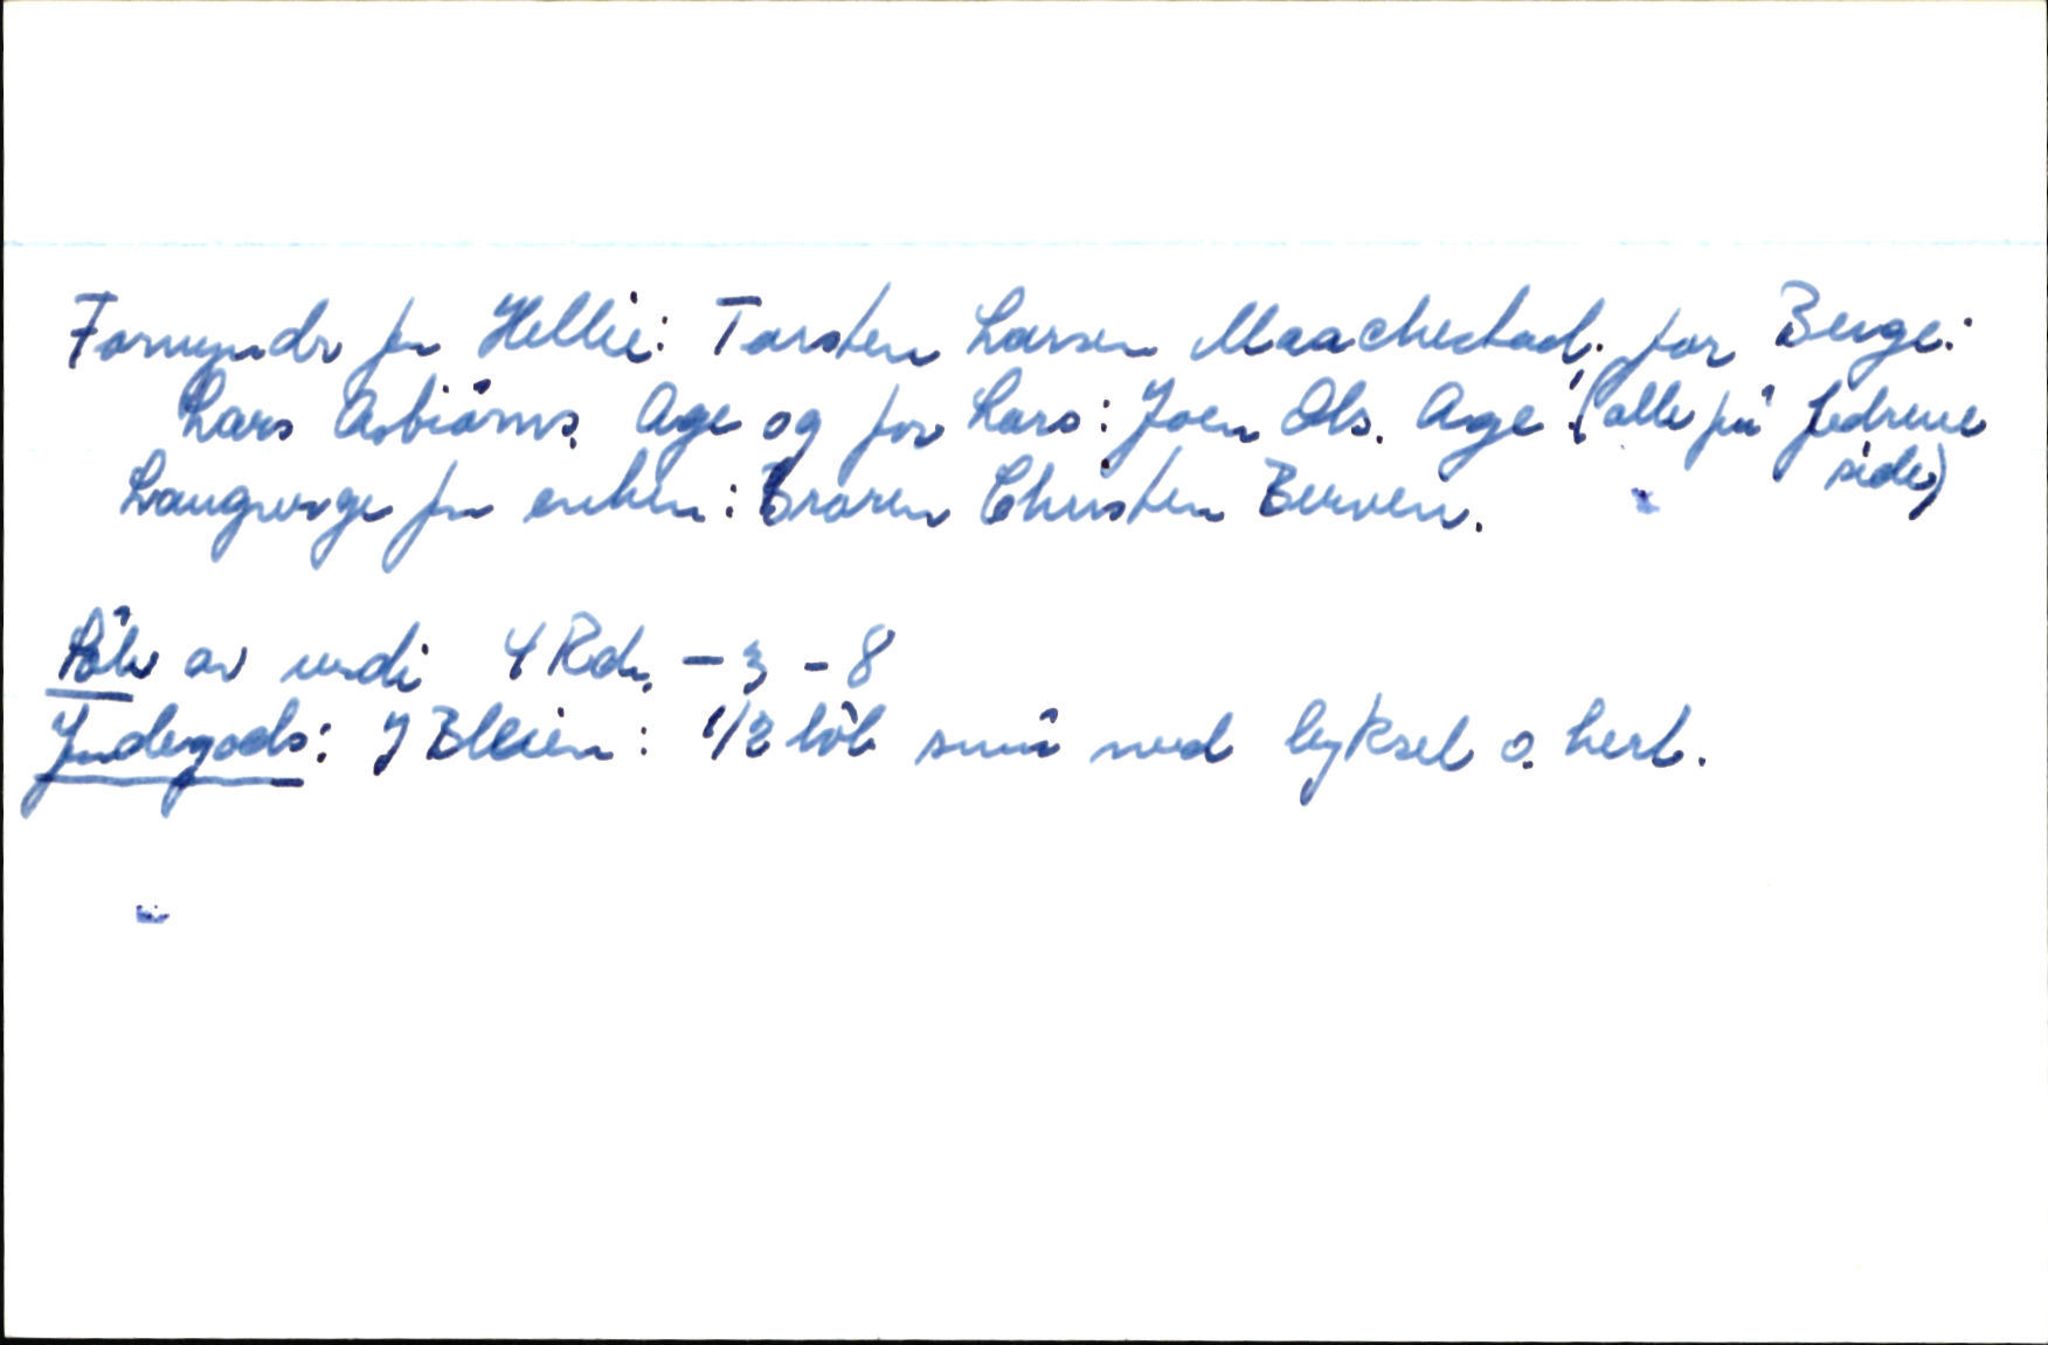 Formyndr for Hellie: Torsten Larsen Maachestad. for Berge:
Lars Asbiörns. Age og for Lars: Joen Ols. Age! (alle på fedrene
side)
Laugverge for enken: Broren Christen Berven.
Sölv av verdi 4 Rdr. - 3 - 8
Jordegods: J Bleien: 1/2 löb smör med byksel o. herl.